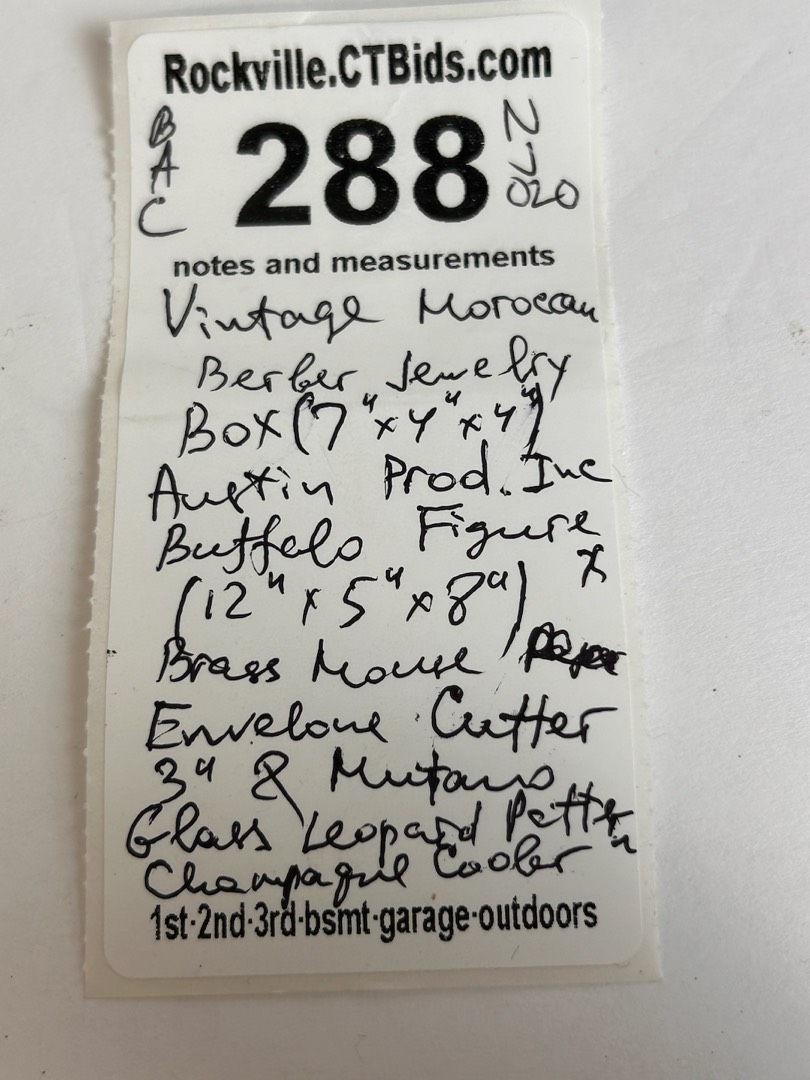 Rockville.CTBids.com
BAC
288
notes and measurements
Vintage Moroccan
Berber Jewelry
Box (7"x4"x4")
Austin Prod. Inc
Buffalo Figure
(12"x5"x8") x
Brass Mouse
Envelone Cutter
3" & Mutano
Glass Leopard Pattern
Champagne Cooler
1st·2nd·3rd·bsmt·garage·outdoors